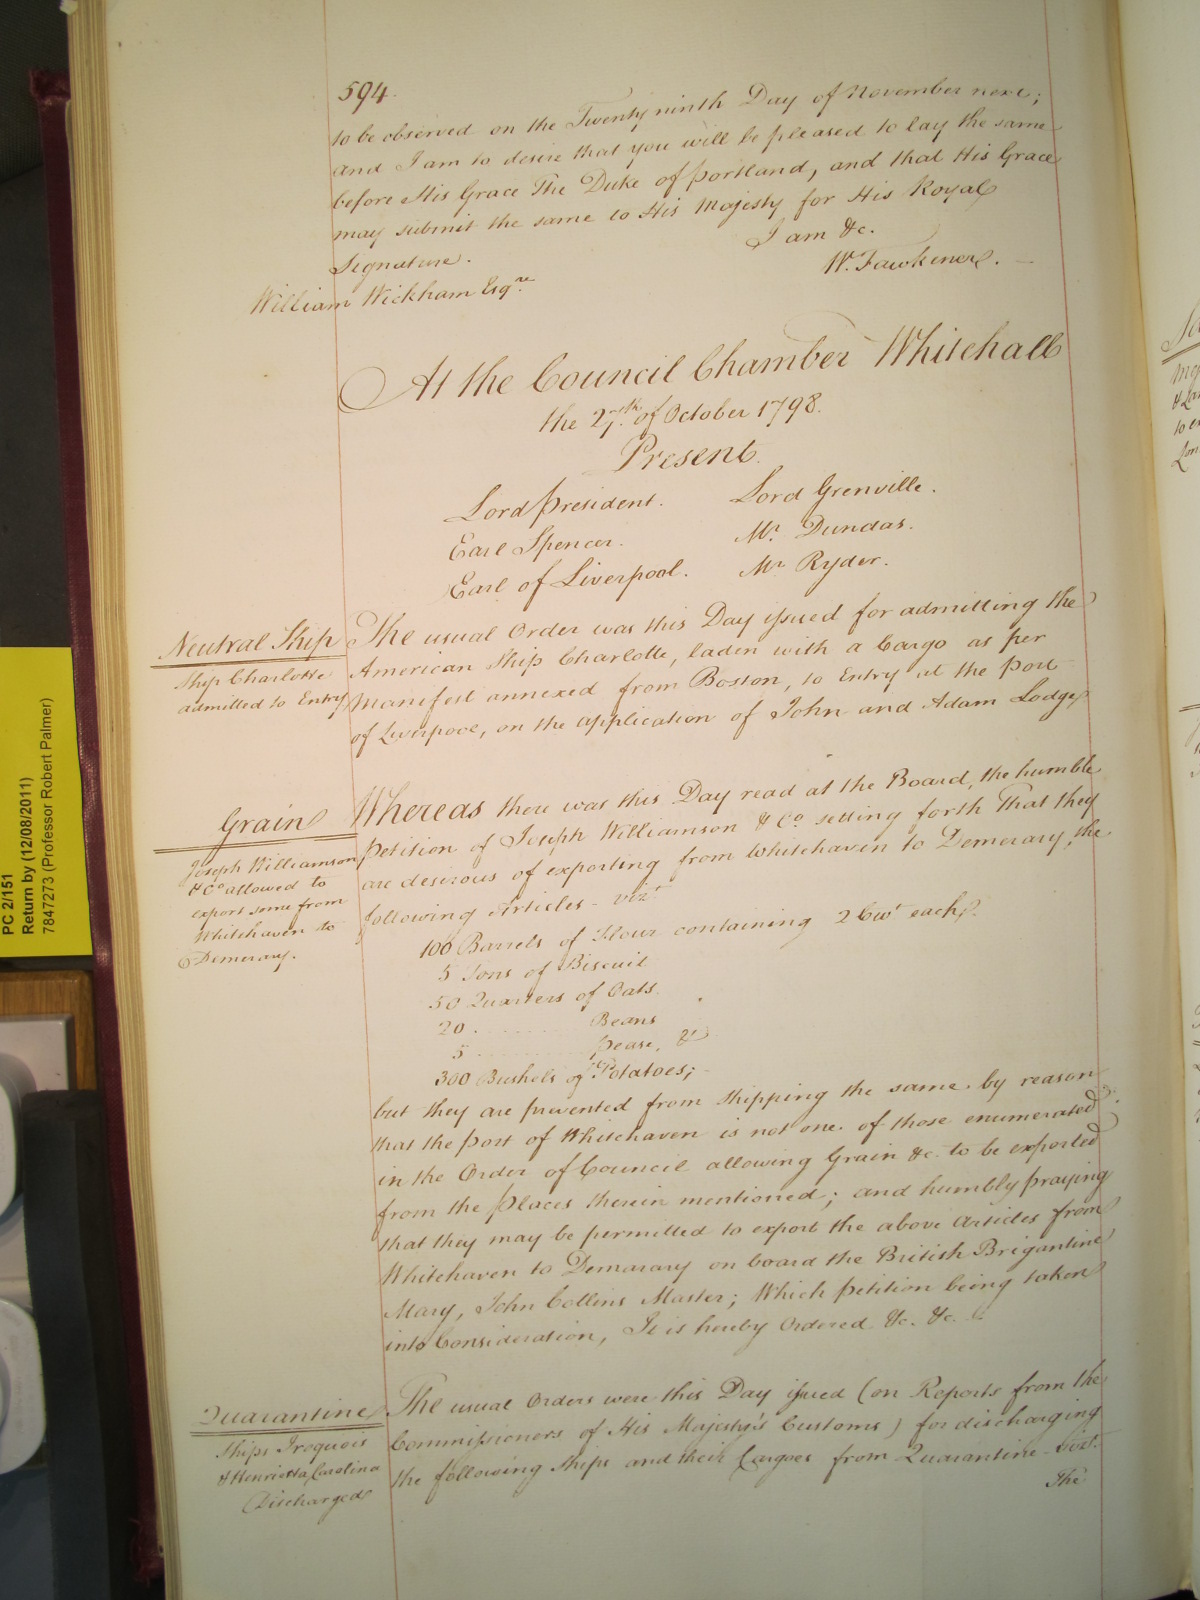 594
to be observed on the Twenty ninth Day of November next;
and I am to desire that you will be pleased to lay the same
before His Grace The Duke of Portland, and that His Grace
may submit the same to His Majesty for His Royal
Signature.
I am &c.
W. Fawkener.
William Wickham Esqre
At the Council Chamber Whitehall
the 27th of October 1798.
Present
Lord President. Lord Grenville.
Earl Spencer. Mr. Dundas.
Earl of Liverpool. Mr Ryder.
Neutral Ship
Ship Charlotte
admitted to Entry
The usual Order was this Day issued for admitting the
American Ship Charlotte, laden with a Cargo as per
Manifest annexed from Boston, to Entry at the Port
of Liverpool, on the application of John and Adam Lodge
Grain
Joseph Williamson
& Co allowed to
export some from
Whitehaven to
Demerary.
Whereas there was this Day read at the Board, the humble
Petition of Joseph Williamson & Co setting forth That they
are desirous of exporting from Whitehaven to Demerary, the
following Articles - vizt
100 Barrels of Flour containing 2 Cwt each.
5 Tons of Biscuit
50 Quarters of Oats.
20 .......... Beans
5 .......... Pease, &
300 Bushels of Potatoes;
but they are prevented from shipping the same by reason
that the Port of Whitehaven is not one of those enumerated
in the Order of Council allowing Grain &c. to be exported
from the Places therein mentioned; and humbly praying
that they may be permitted to export the above Articles from
Whitehaven to Demarary on board the British Brigantine
Mary, John Collins Master; Which Petition being taken
into Consideration, It is hereby Ordered &c. &c.
Quarantine
Ships Iroquois
& Henrietta Carolina
Discharged
The usual Orders were this Day issued (on Reports from the
Commissioners of His Majesty's Customs) for discharging
the following Ships and their Cargoes from Quarantine vizt.
The
PC 2/151
Return by (12/08/2011)
7847273 (Professor Robert Palmer)